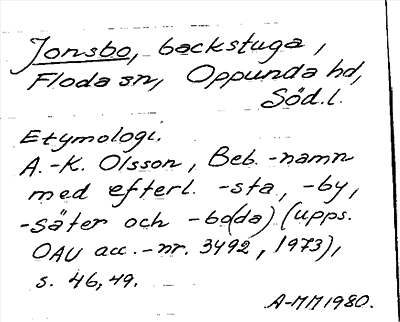 Jonsbo, backstuga,
Floda sn, Oppunda hd,
Söd.l.
Etymologi.
A.-K. Olsson, Beb.-namn
med efterl. -sta, -by,
-säter och -bo(da) (upps.
OAU acc.-nr. 3492, 1973),
s. 46, 49.
A-MM 1980.